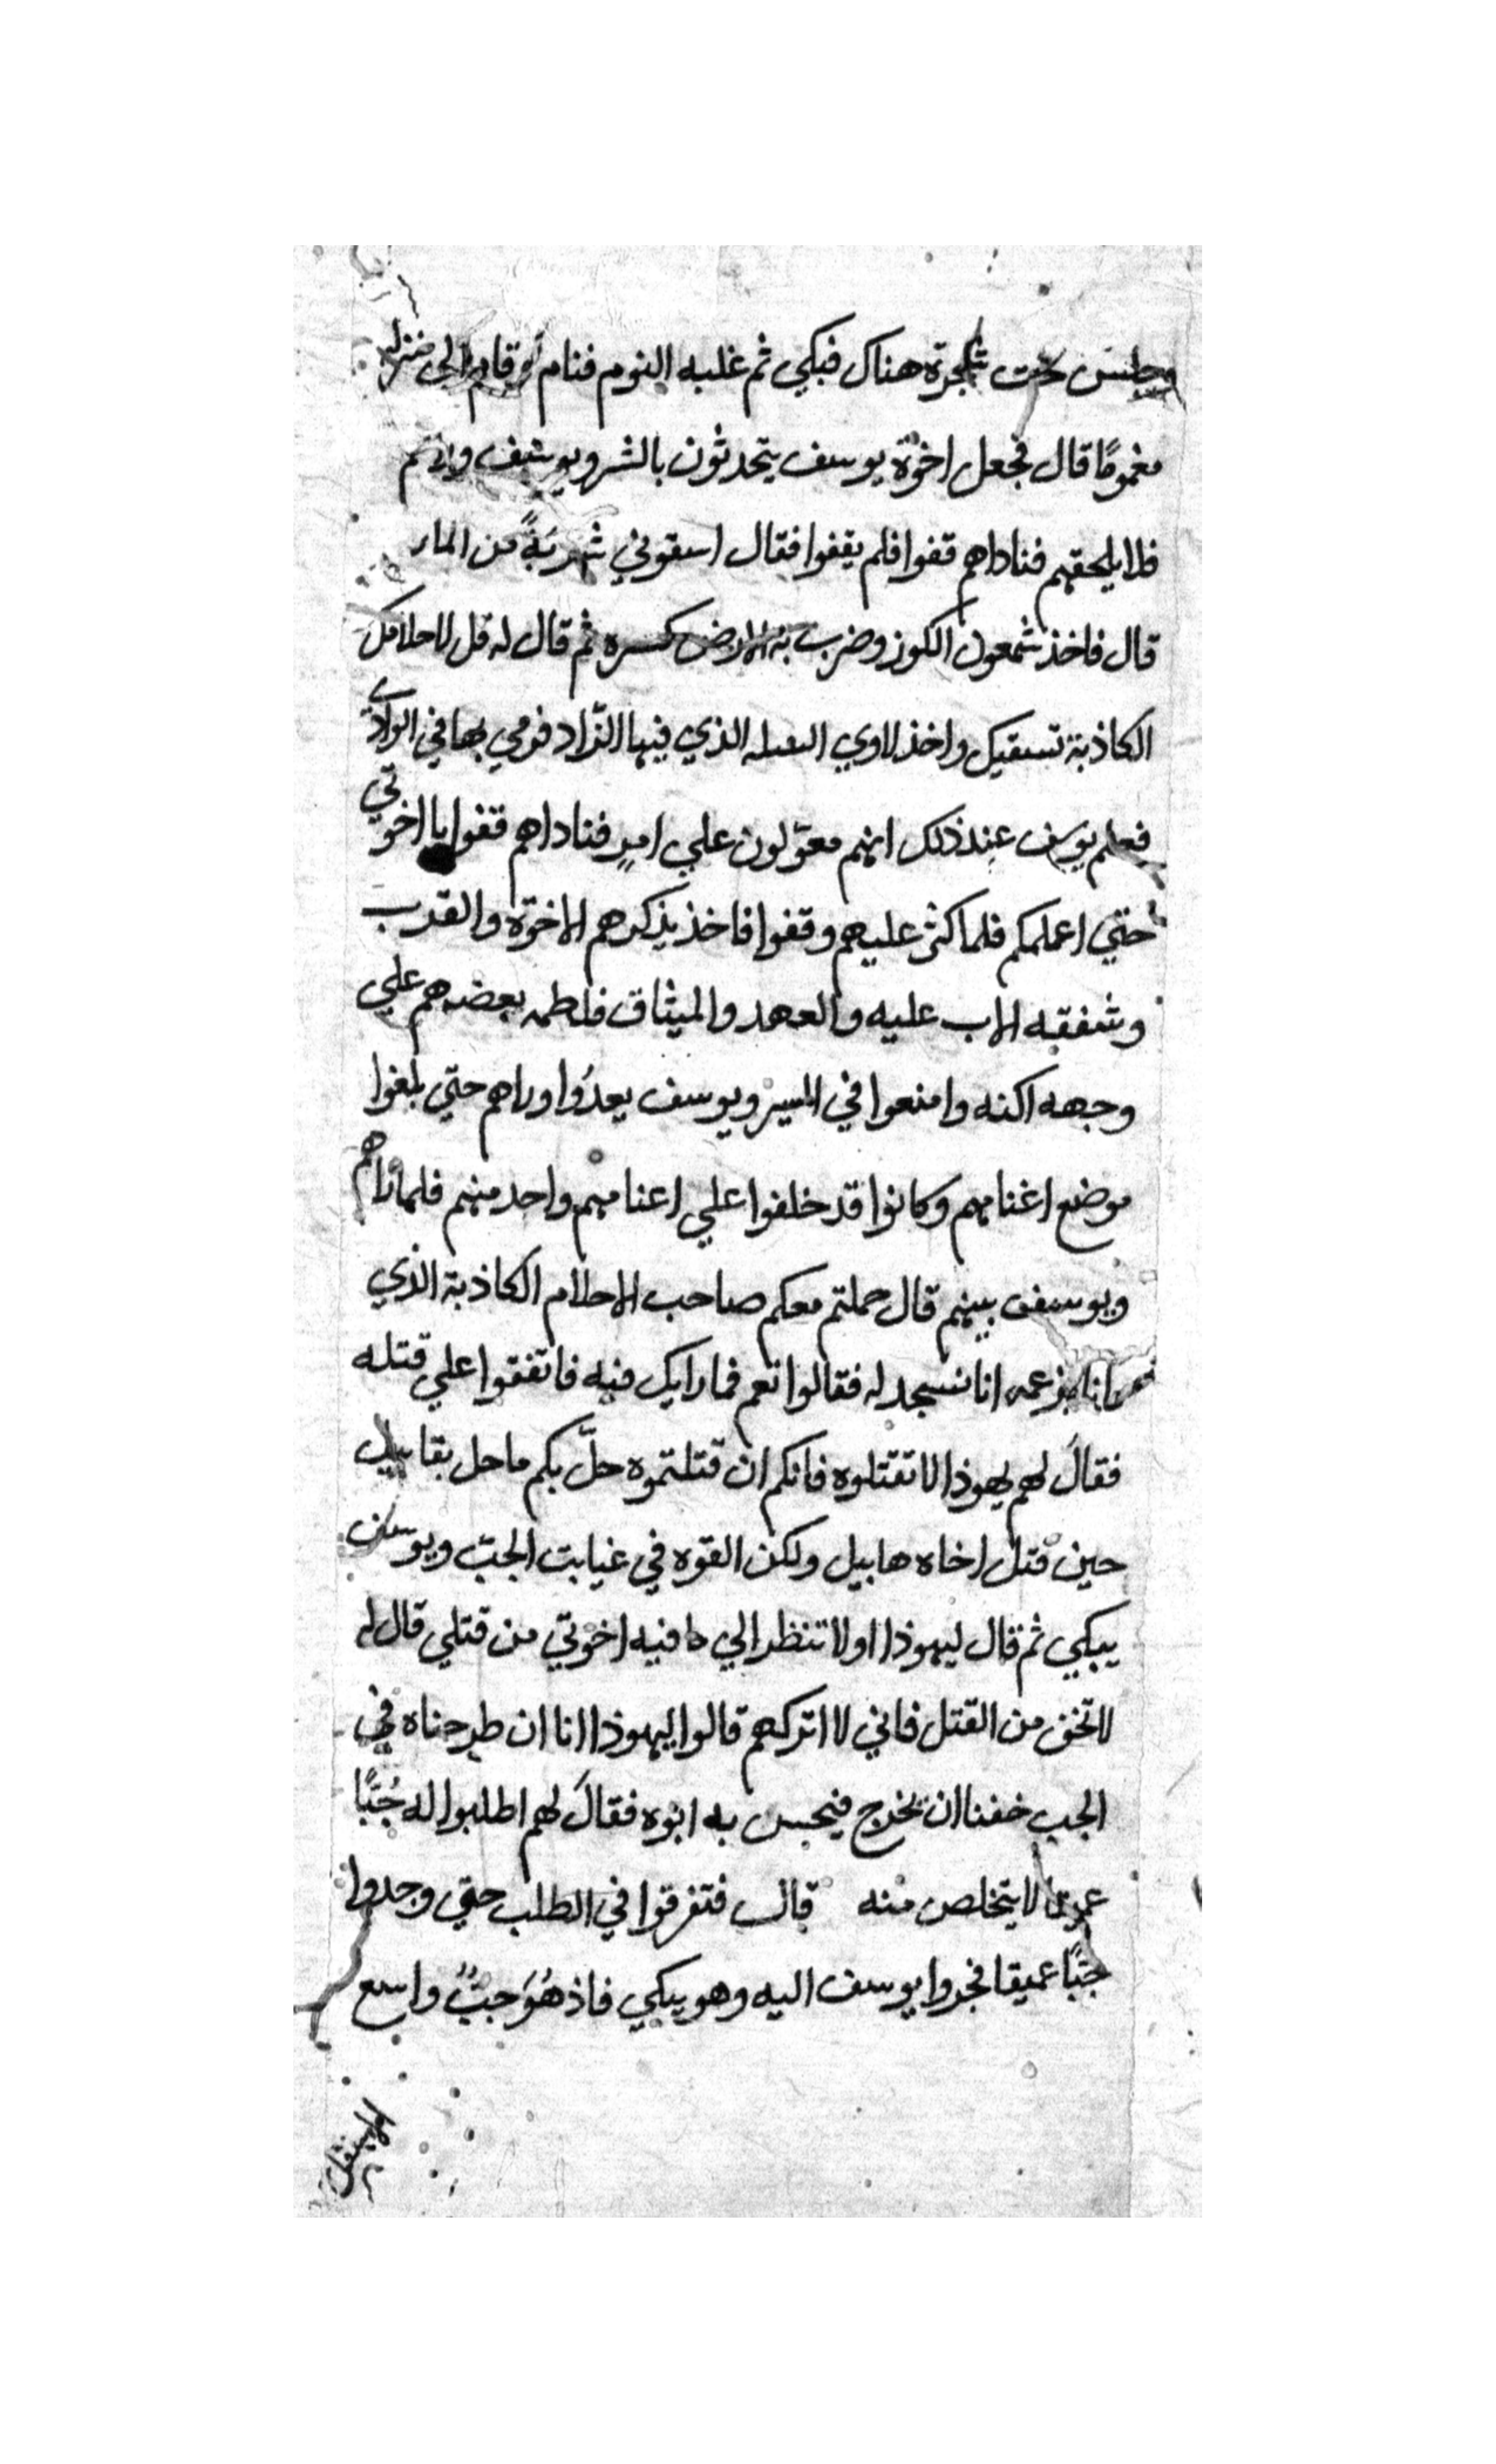 وجلس تحت شجرة هناك فبكي ثم غلبه النوم فنام ثم قام الى منزله
مغمومًا قال فجعل اخوة يوسف يتحدثون بالشر ويوسف وراهم
فلا يلحقهم فناداهم قفوا فلم يقفوا فقال اسقوني شربةً من الماء
قال فاخذ شمعون الكوز وضرب به الارض كسره ثم قال له قل لاحلامك
الكاذبة تسقيك واخذ لاوي السله الذي فيها الزّاد فرمي بها في الوادي
فعلم يوسف عند ذلك انهم معوّلون علي امرٍ فناداهم قفوا يا اخوتي
حتي اعلمكم فلما كثر عليهم وقفوا فاخذ يذكرهم الاخوّة والقرب
وشفقه الاب عليه والعهد والميثاق فلطمه بعضهم علي
وجهه اكنه وامنعوا في السير ويوسف يعدُوا وراهم حتي بلغوا
موضع اغنامهم وكانوا قد خلفوا علي اغنامهم واحد منهم فلما راهم
ويوسف بينهم قال حملتم معكم صاحب الاحلام الكاذبة الذي
بزعمه انا نسجد له فقالوا نعم فما رايك فيه فاتفقوا علي قتله
فقالَ لهم يهوذا لا تقتلوه فانكم ان قتلتموه حلّ بكم ما حل بقابيل
حين قتل اخاه هابيل ولكن القوه في غيابت الجبّ ويوسف
يبكي ثم قال ليهوذا اولا تنظر الي ما فيه اخوتي من قتلي قال له
لا تخف من القتل فاني لا اتركهم قالوا ليهوذا انا ان طرحناه في
الجب خفنا ان يخرج فيحس به ابوه فقالَ لهم اطلبوا له جُبًّا
لا يتخلص منه قال فتفرقوا في الطلب حتي وجدوا
جبًّا عميقا فجروا يوسف اليه وهو يبكي فاذ هُوَ جبٌّ واسع